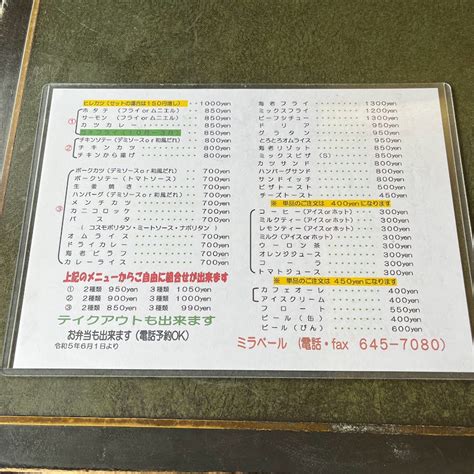 ヒレカツ（セットの場合は150円増し）・・・1000yen
① ホタテ（フライorムニエル）・・・850yen
サーモン（フライorムニエル）・・・850yen
カツカレー・・・850yen
850yen
② チキンソテー（デミソースor和風だれ）・・・800yen
チキンカツ・・・800yen
チキンから揚げ・・・800yen
③ ポークカツ（デミソースor和風だれ）・・・700yen
ポークソテー（トマトソース）・・・700yen
生姜焼き・・・700yen
ハンバーグ（デミソースor和風だれ）・・・700yen
メンチカツ・・・700yen
カニコロッケ・・・700yen
パスタ・・・700yen
（コスモポリタン・ミートソース・ナポリタン）
オムライス・・・700yen
ドライカレー・・・700yen
海老ピラフ・・・700yen
カレーライス・・・700yen
上記のメニューからご自由に組合せが出来ます
① 2種類 950yen 3種類 1050yen
② 2種類 900yen 3種類 1000yen
③ 2種類 850yen 3種類 950yen
テイクアウトも出来ます
お弁当も出来ます（電話予約OK）
令和5年6月1日より
海老フライ・・・1300yen
ミックスフライ・・・1200yen
ビーフシチュー・・・1300yen
ドリア・・・950yen
グラタン・・・950yen
とろとろオムライス・・・950yen
海老リゾット・・・850yen
ミックスピザ（S）・・・850yen
カツサンド・・・800yen
ハンバーグサンド・・・800yen
サンドイッチ・・・700yen
ピザトースト・・・700yen
チーズトースト・・・450yen
※ 単品のご注文は 400yenになります
コーヒー（アイスorホット）・・・300yen
ミルクティー（アイスorホット）・・・300yen
レモンティー（アイスorホット）・・・300yen
ミルク（アイスorホット）・・・300yen
ウーロン茶・・・300yen
オレンジジュース・・・300yen
コーラ・・・300yen
トマトジュース・・・300yen
※ 単品のご注文は 450yenになります
カフェオーレ・・・400yen
アイスクリーム・・・400yen
フロート・・・550yen
ビール（缶）・・・400yen
ビール（びん）・・・600yen
ミラベール （電話・fax 645-7080）